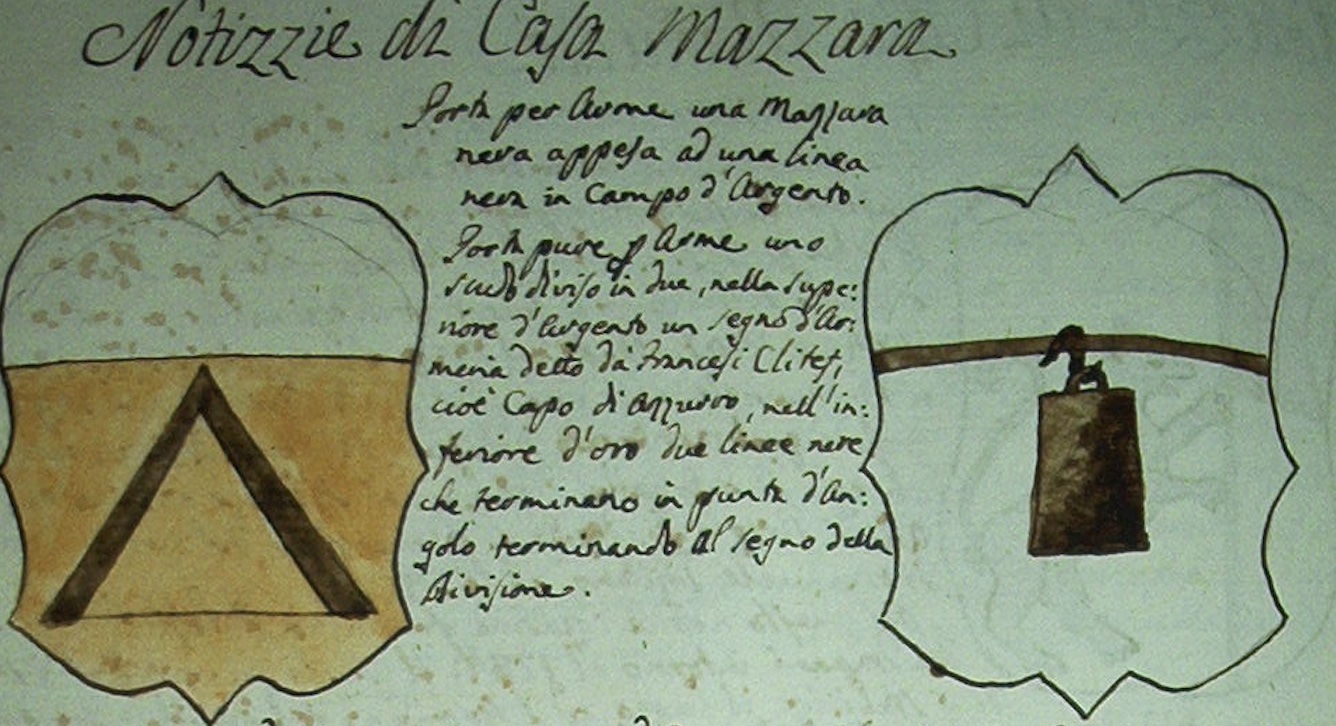 Notizzie di Casa Mazzara
Porta per Arme una Mazzara
nera appesa ad una linea
nera in Campo d'Argento.
Porta pure p Arme uno
scudo diviso in due, nella supe:
riore d'Argento un segno d'Ar:
meria detto da Francesi Clitet,
cioè Capo di Azzurro, nell'in:
feriore d'oro due linee nere
che terminano in punta d'An:
golo terminando al segno della
divisione.